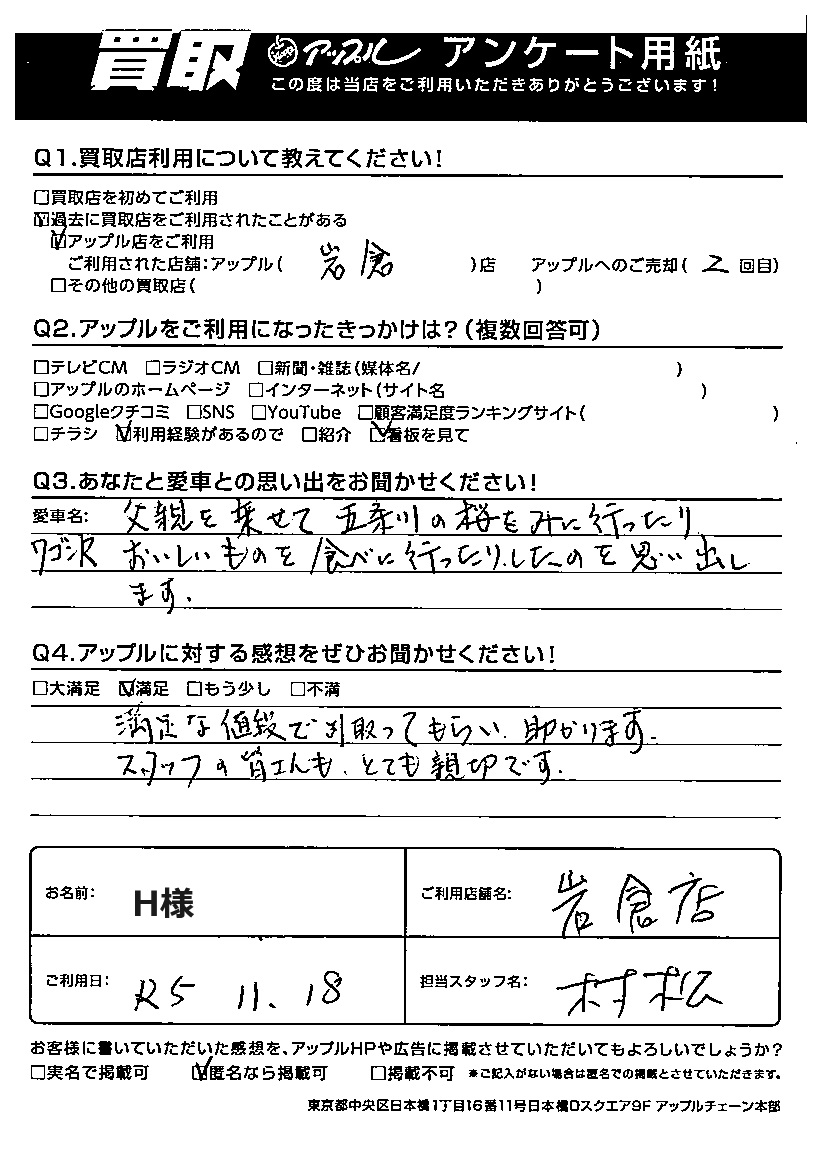 買取 アップル アンケート用紙
この度は当店をご利用いただきありがとうございます!
Q1.買取店利用について教えてください!
□買取店を初めてご利用
☑過去に買取店をご利用されたことがある
☑アップル店をご利用
ご利用された店舗:アップル( 岩倉 )店 アップルへのご売却( 2 回目)
□その他の買取店( )
Q2.アップルをご利用になったきっかけは?(複数回答可)
□テレビCM □ラジオCM □新聞・雑誌(媒体名/ )
□アップルのホームページ □インターネット(サイト名 )
□Googleクチコミ □SNS □YouTube □顧客満足度ランキングサイト( )
□チラシ ☑利用経験があるので □紹介 ☑看板を見て
Q3.あなたと愛車との思い出をお聞かせください!
愛車名: 父親を乗せて五条川の桜をみに行ったり
ワゴンR おいしいものを食べに行ったりしたのを思い出し
ます.
Q4.アップルに対する感想をぜひお聞かせください!
□大満足 ☑満足 □もう少し □不満
満足な値段で引取ってもらい、助かります.
スタッフの皆さんも、とても親切です.
お名前: H様 ご利用店舗名: 岩倉店
ご利用日: R5 11. 18 担当スタッフ名: 村松
お客様に書いていただいた感想を、アップルHPや広告に掲載させていただいてもよろしいでしょうか?
□実名で掲載可 ☑匿名なら掲載可 □掲載不可 ※ご記入がない場合は匿名での掲載とさせていただきます。
東京都中央区日本橋1丁目16番11号日本橋Dスクエア9F アップルチェーン本部